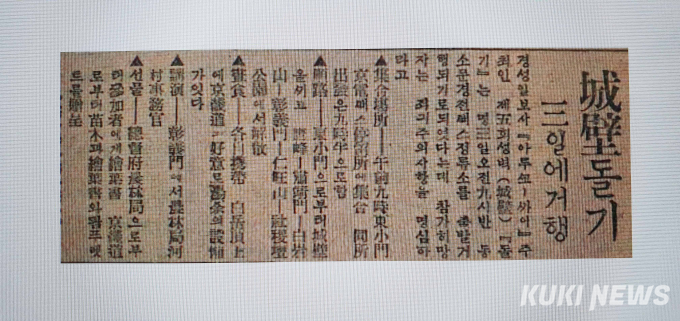 城壁돌기
三일에거행
경성일보사 『아루꼬―싸이』 주
최인 제五회성벽(城壁)『돌
기』는 명三일오전九시반 동
소문경전뻐스정류소를 출발거
행되기로되엿다는데 참가히망
자는 좌긔주의사항을 명심하
라고
▲集合場所―午前九時東小門
京電뻐스停留所에集合 同所
出發은九時半으로함
▲順路―東小門으로부터城壁
山―彰義門―仁旺山―社稷壇
公園에서解散
▲晝食―各自携帶 白岳頂上
에京畿道
가잇다
▲講演―彰義門에서農林局河
村事務官
▲선물―總督府農林局으로부
터參加者에게繪葉書 京畿道
로부터苗木과繪葉書와팜푸렛
트를贈呈
KUKI NEWS